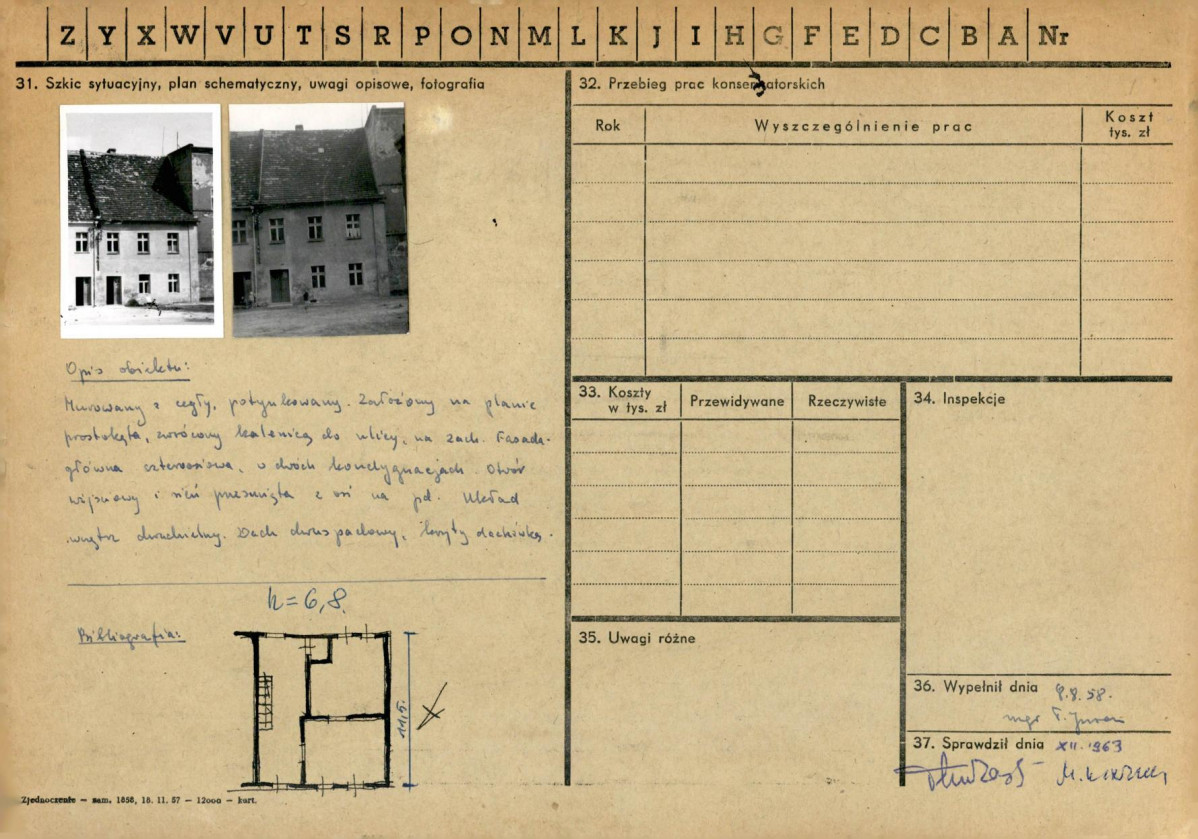 Z Y X W V U T S R P O N M L K J I H G F E D C B A Nr
31. Szkic sytuacyjny, plan schematyczny, uwagi opisowe, fotografia
Opis obiektu:
Murowany z cegły, potynkowany. Założony na planie
prostokąta, zwrócony kalenicą do ulicy, na zach. Fasada
główna czteroosiowa, o dwóch kondygnacjach. Otwór
wejściowy i sień przesunięta z osi na pd. Układ
wnętrz dwudzielny. Dach dwuspadowy, kryty dachówką.
h=6,8.
Bibliografia:
11,5.
Zjednoczenie – zam. 1858, 18. 11. 57 – 12000 – kart.
32. Przebieg prac konserwatorskich
Rok Wyszczególnienie prac Koszt tys. zł
33. Koszty w tys. zł Przewidywane Rzeczywiste
34. Inspekcje
35. Uwagi różne
36. Wypełnił dnia 9.8.58.
mgr T.
37. Sprawdził dnia XII. 1963
M.